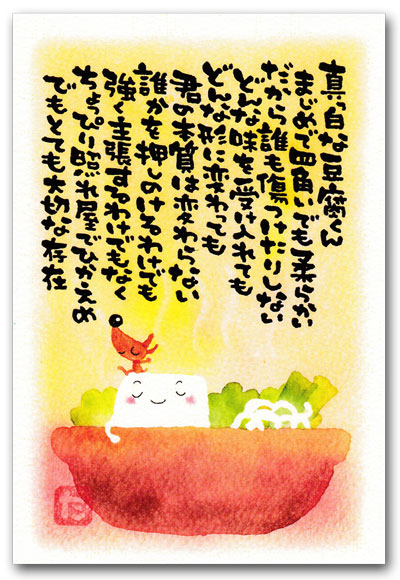 真っ白な豆腐くん
まじめで四角いでも柔らかい
だから誰も傷つけたりしない
どんな味を受け入れても
どんな形に変わっても
君の本質は変わらない
誰かを押しのけるわけでも
強く主張するわけでもなく
ちょっぴり照れ屋でひかえめ
でもとても大切な存在
た